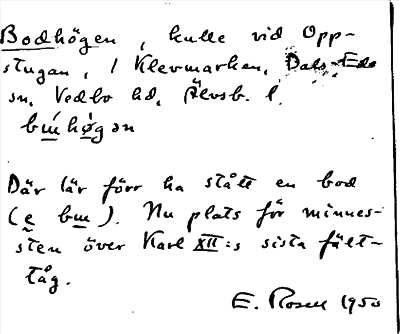 Bodhögen, kulle vid Opp-
stugan, i Klevmarken, Dals-Eds
sn, Vedbo hd, Älvsb. l.
bɯhøgən
Där lär förr ha stått en bod
(e bɯ). Nu plats för minnes-
sten över Karl XII:s sista fält-
tåg.
E. Rosell 1950